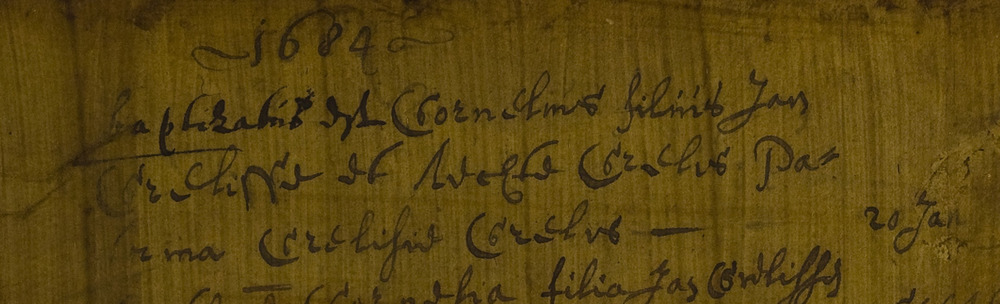 ~ 1684 ~
baptizatus est Cornelius filius Jan
Crelisse et Aechte Crelis Pa=
rina Crelisie Crelis — 20 Jan
Cornelia filia Jan Crelisse